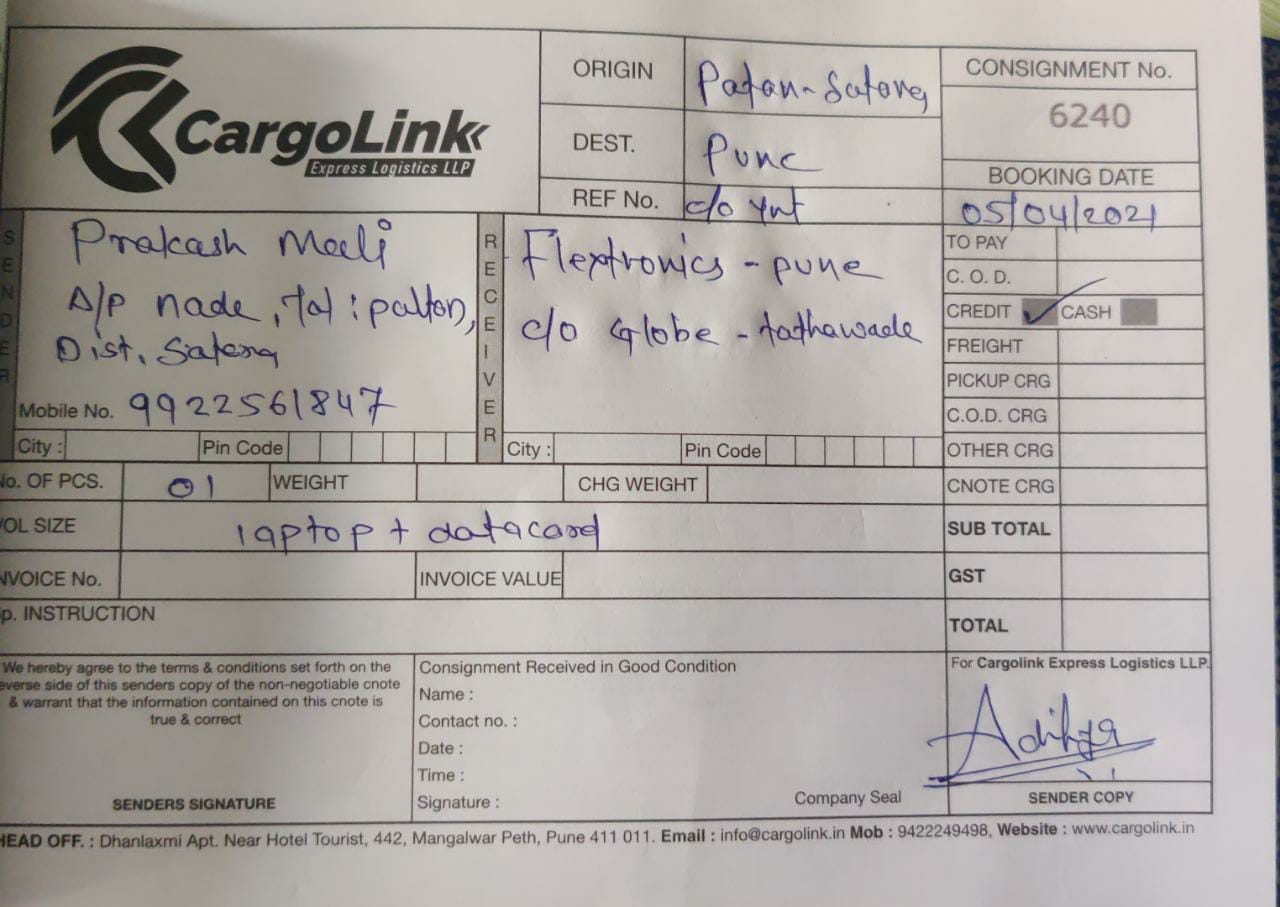 CargoLink
Express Logistics LLP
ORIGIN Patan - Satara
DEST. Pune
REF No. c/o
CONSIGNMENT No.
6240
BOOKING DATE
05/04/2021
SENDER
Prakash Mali
A/P nade, tal : patan,
Dist, Satara
Mobile No. 9922561847
City : Pin Code
RECEIVER
Flextronics - pune
c/o Globe - tathawade
City : Pin Code
TO PAY
C. O. D.
CREDIT ✓ CASH
FREIGHT
PICKUP CRG
C.O.D. CRG
OTHER CRG
CNOTE CRG
SUB TOTAL
GST
TOTAL
No. OF PCS. 01 WEIGHT CHG WEIGHT
VOL SIZE laptop + datacard
INVOICE No. INVOICE VALUE
Sp. INSTRUCTION
We hereby agree to the terms & conditions set forth on the
reverse side of this senders copy of the non-negotiable cnote
& warrant that the information contained on this cnote is
true & correct
SENDERS SIGNATURE
Consignment Received in Good Condition
Name :
Contact no. :
Date :
Time :
Signature :
Company Seal
For Cargolink Express Logistics LLP.
Aditya
SENDER COPY
HEAD OFF. : Dhanlaxmi Apt. Near Hotel Tourist, 442, Mangalwar Peth, Pune 411 011. Email : info@cargolink.in Mob : 9422249498, Website : www.cargolink.in